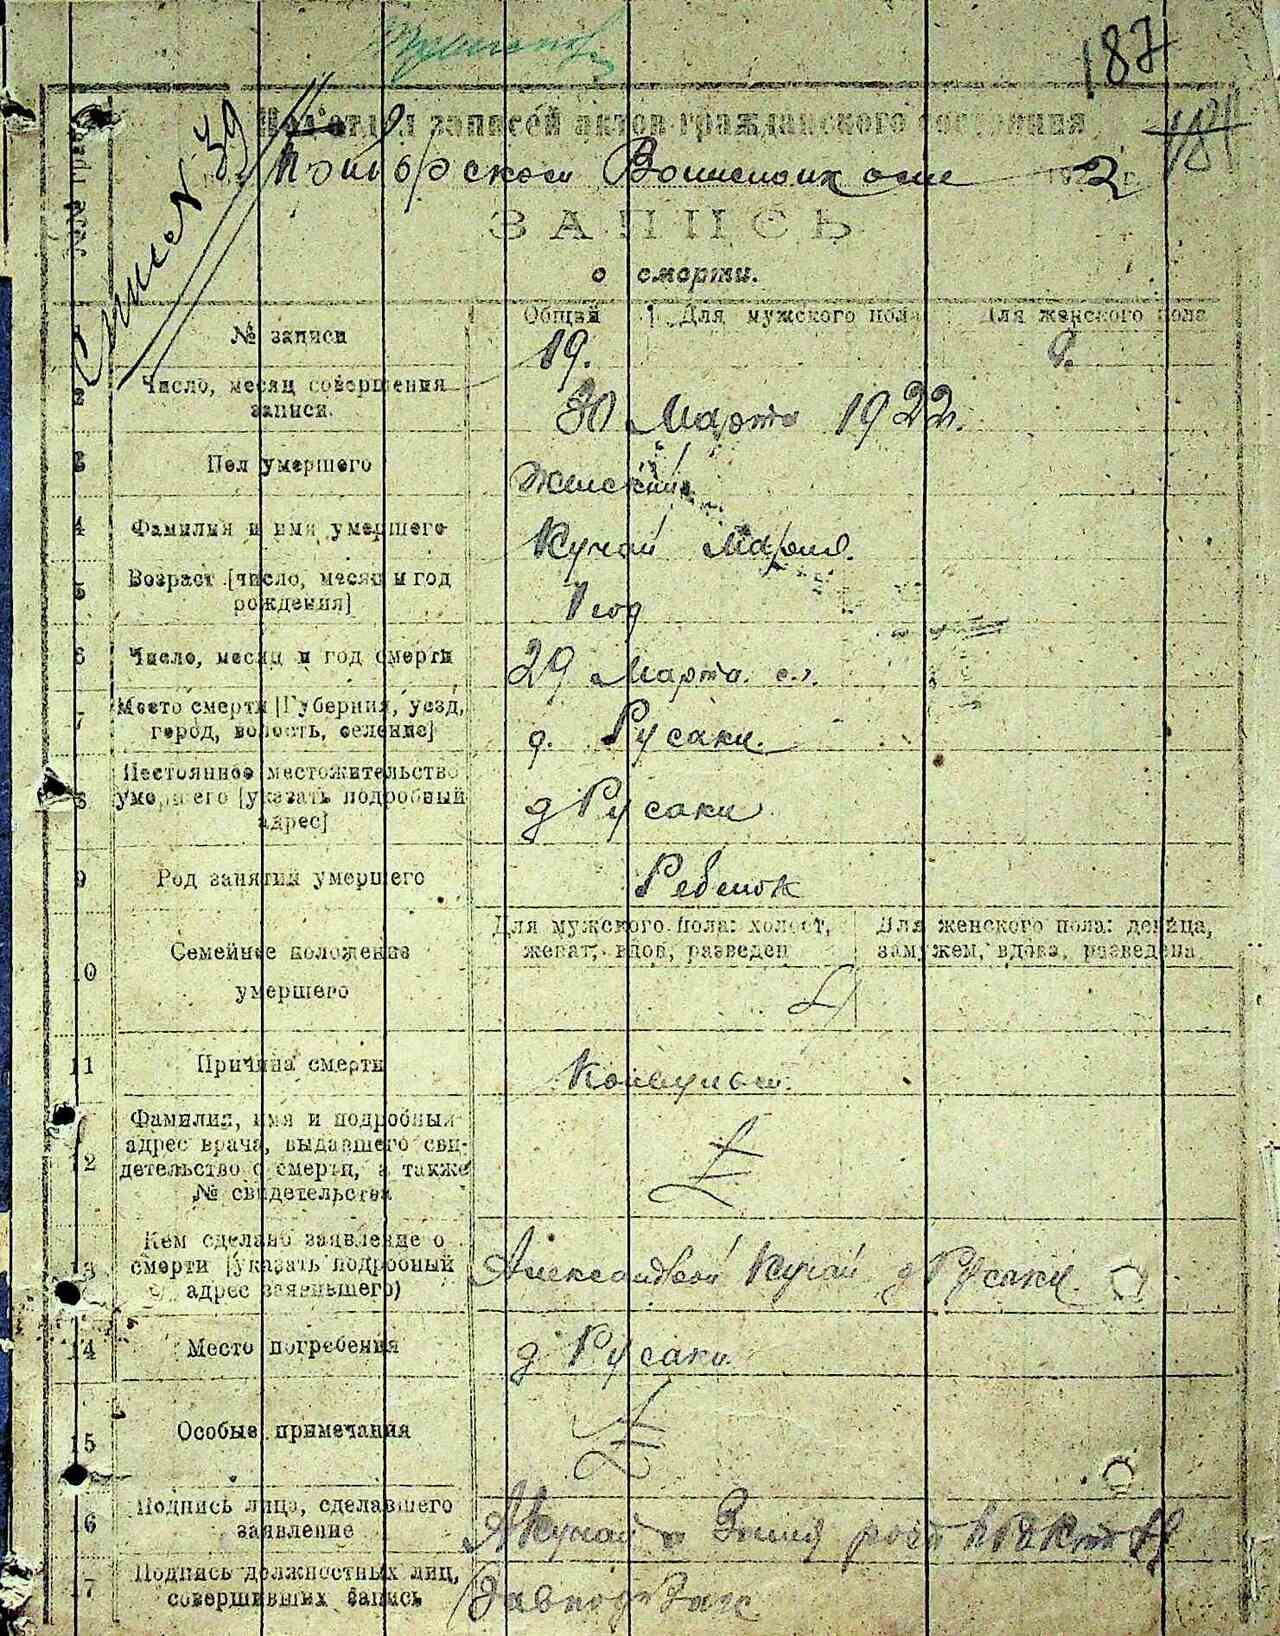 187
181
Подотдел записей актов гражданского состояния
2
ЗАПИСЬ
о смерти.
Общий Для мужского пола Для женского пола
№ записи 19. 9.
2 Число, месяц совершения записи. 30 Марта 1922г.
3 Пол умершего Женский
4 Фамилия и имя умершего Кучай Мария.
5 Возраст [число, месяц и год рождения] 1 год
6 Число, месяц и год смерти 29 Марта с.г.
7 Место смерти [Губерния, уезд, город, волость, селение] д. Русаки.
8 Постоянное местожительство умершего [указать подробный адрес] д Русаки
9 Род занятий умершего Ребенок
10 Семейное положение умершего
Для мужского пола: холост, женат, вдов, разведен
Для женского пола: девица, замужем, вдова, разведена
11 Причина смерти
12 Фамилия, имя и подробный адрес врача, выдавшего свидетельство о смерти, а также № свидетельства
13 Кем сделано заявление о смерти [указать подробный адрес заявившего) Александрой Кучай д Русаки.
14 Место погребения д Русаки
15 Особые примечания
16 Подпись лица, сделавшего заявление Кучай
17 Подпись должностных лиц, совершивших запись Завподзагс